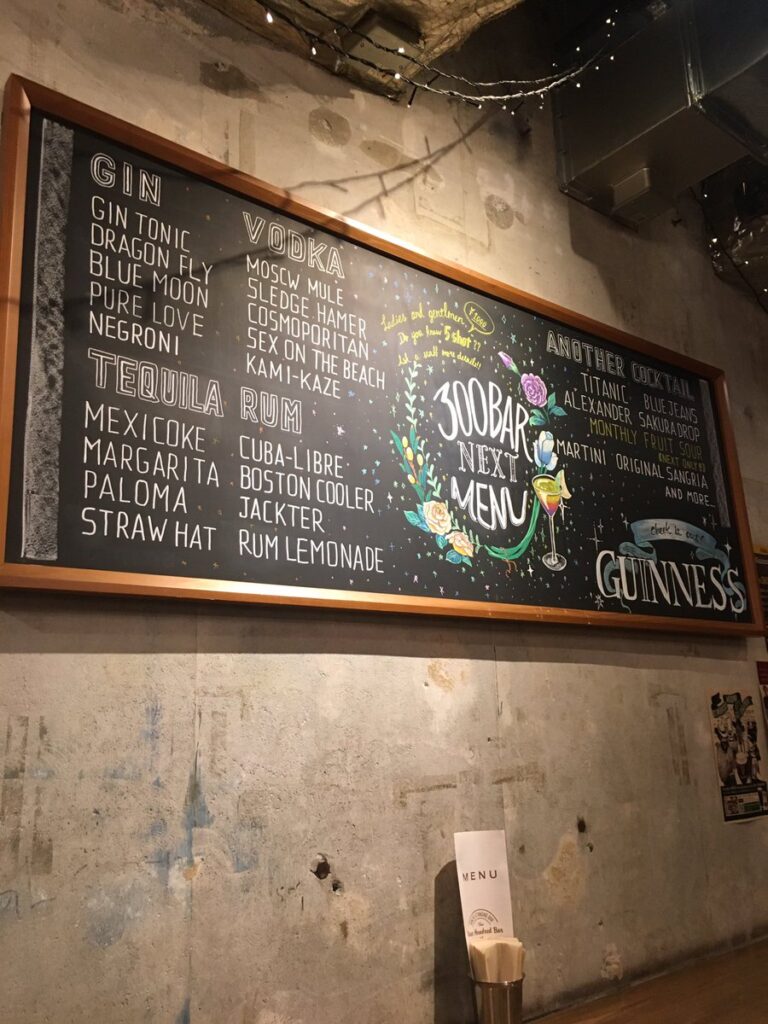 GIN
GIN TONIC
DRAGON FLY
BLUE MOON
PURE LOVE
NEGRONI
VODKA
MOSCW MULE
SLEDGE HAMER
COSMOPORITAN
SEX ON THE BEACH
KAMI-KAZE
TEQUILA
MEXICOKE
MARGARITA
PALOMA
STRAW HAT
RUM
CUBA-LIBRE
BOSTON COOLER
JACKTER
RUM LEMONADE
Ladies and gentlemen
¥1000
Do you know 5 shot??
wall more details!!
300BAR
NEXT
MENU
ANOTHER COCKTAIL
TITANIC BLUE JEANS
ALEXANDER SAKURA DROP
MONTHLY FRUIT SOUR
(NEXT ONLY
MARTINI ORIGINAL SANGRIA
AND MORE...
check it out
GUINNESS
MENU
Hundred Bar